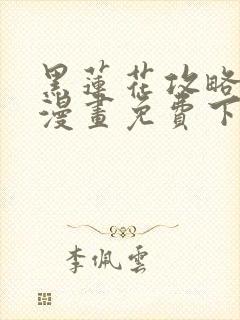 黑蓮花攻略
漫畫免費下
李佩雲